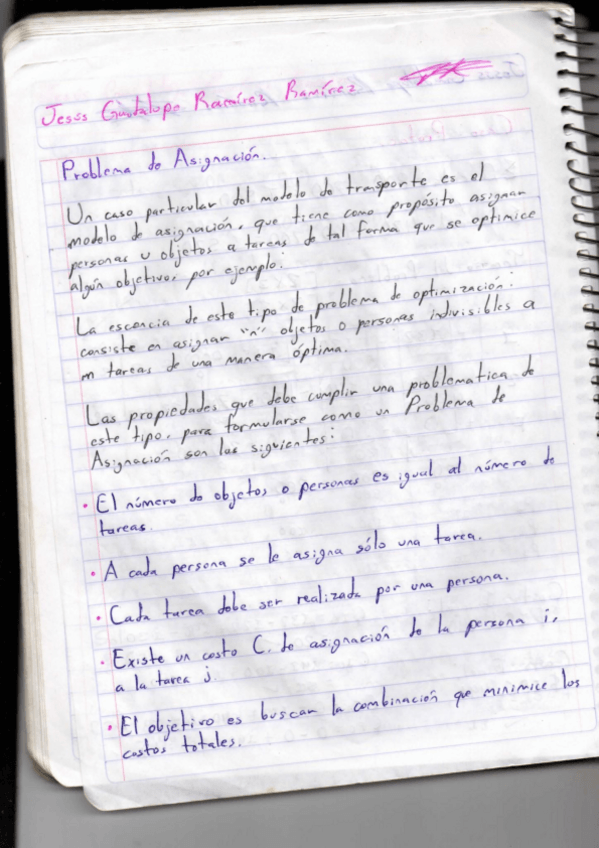 Jesús Guadalupe Ramírez Ramírez
Problema de Asignación.
Un caso particular del modelo de transporte es el
modelo de asignación, que tiene como propósito asignar
personas u objetos a tareas de tal forma que se optimice
algún objetivo, por ejemplo:
La escencia de este tipo de problema de optimización:
consiste en asignar "n" objetos o personas indivisibles a
m tareas de una manera óptima.
Las propiedades que debe cumplir una problematica de
este tipo, para formularse como un Problema de
Asignación son las siguientes:
• El número de objetos o personas es igual al número de
tareas.
• A cada persona se le asigna sólo una tarea.
• Cada tarea debe ser realizada por una persona.
• Existe un costo C. de asignación de la persona i,
a la tarea j.
• El objetivo es buscar la combinación que minimice los
costos totales.